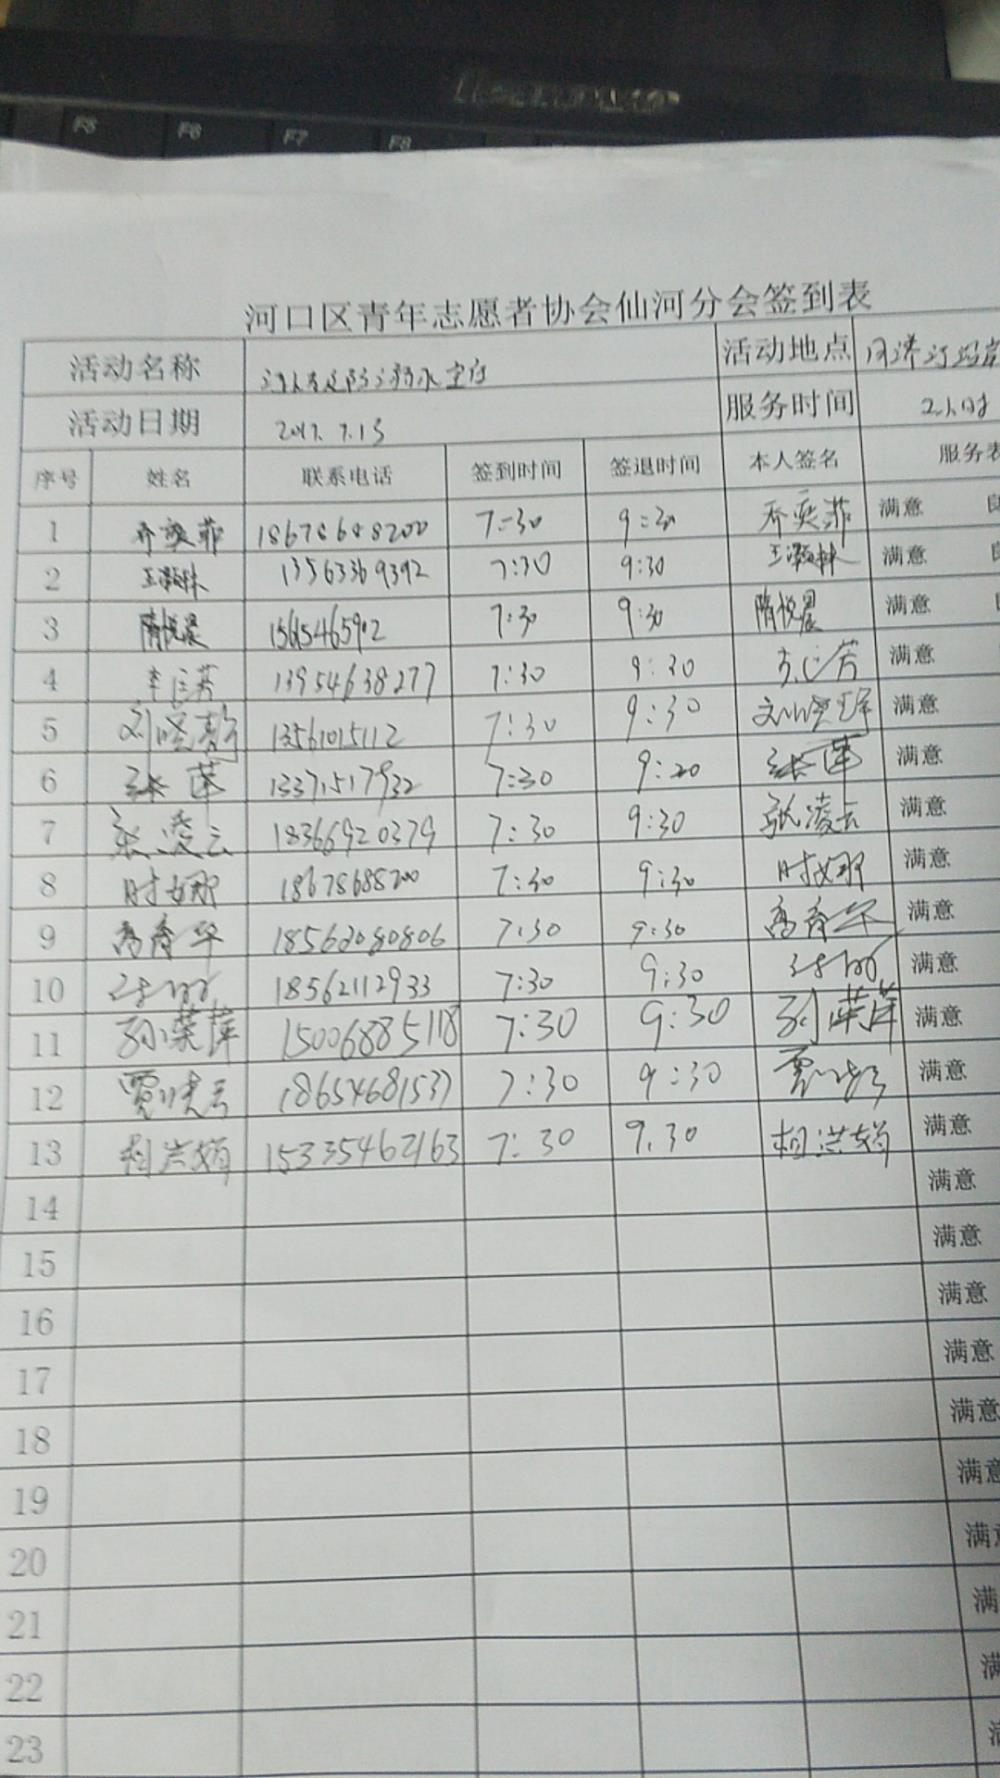 F5 F6 F7 F8
河口区青年志愿者协会仙河分会签到表
活动名称 防溺水宣传 活动地点
活动日期 2017.7.13 服务时间 2小时
序号 姓名 联系电话 签到时间 签退时间 本人签名 服务表
1 乔奕菲 18678688200 7:30 9:30 乔奕菲 满意
2 王灏林 13563369392 7:30 9:30 王灏林 满意
3 隋悦晨 1565465902 7:30 9:30 隋悦晨 满意
4 13954638277 7:30 9:30 满意
5 13561015112 7:30 9:30 满意
6 张莲 13371517932 7:30 9:20 张莲 满意
7 张凌云 18366920379 7:30 9:30 张凌云 满意
8 时女那 18678688200 7:30 9:30 时女那 满意
9 高秀华 18562080806 7:30 9:30 高秀华 满意
10 18562112933 7:30 9:30 满意
11 孙荣萍 15006885118 7:30 9:30 孙荣萍 满意
12 贾晓云 18654681537 7:30 9:30 满意
13 相洪娟 15335462163 7:30 9:30 相洪娟 满意
14 满意
15 满意
16 满意
17 满意
18 满意
19 满意
20 满
21 满
22 满
23